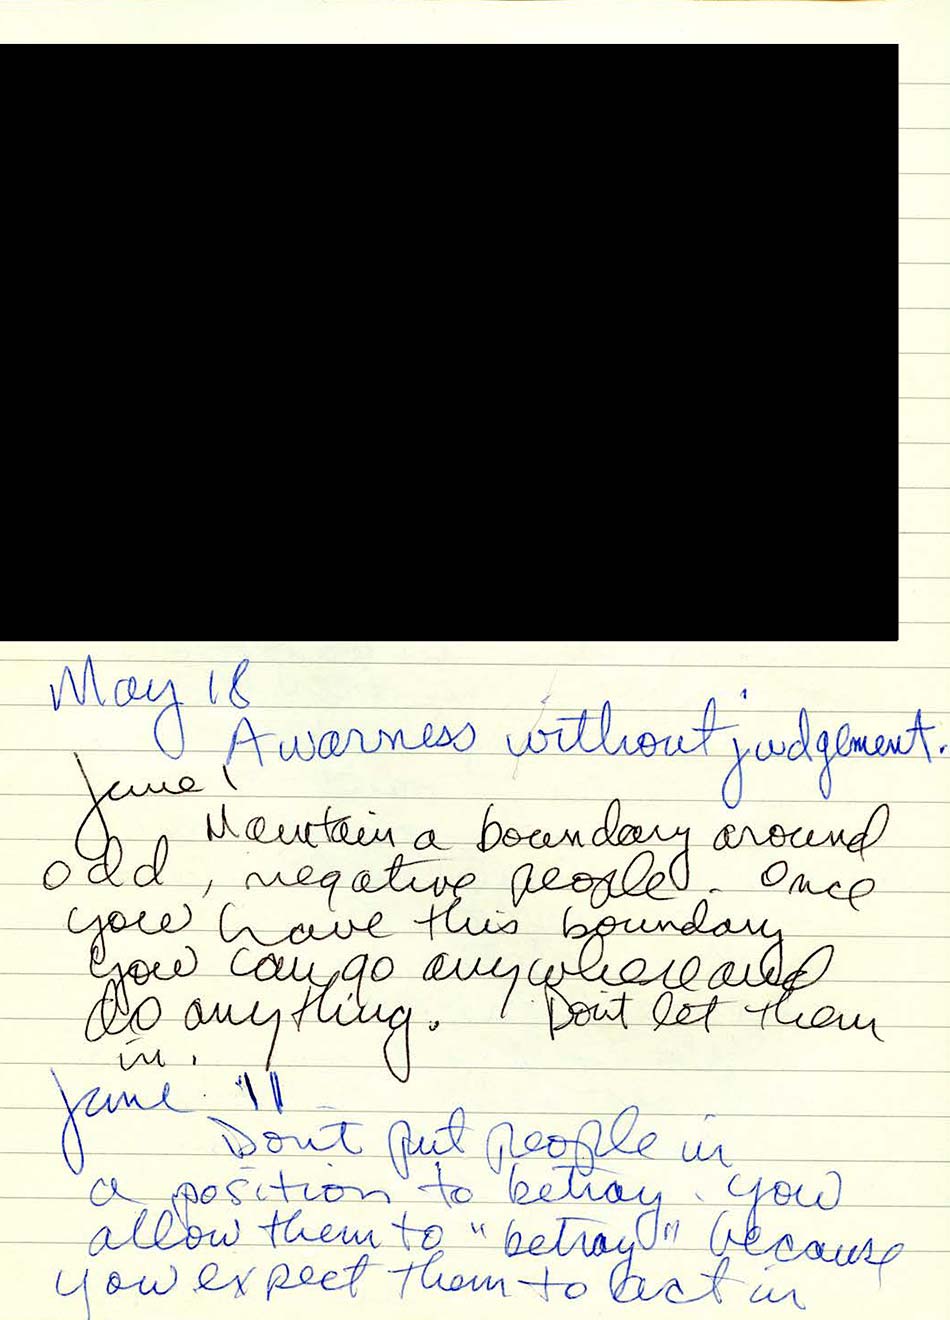 May 18
Awarness without judgement.
June 1
Maintain a boundary around
odd, negative people. Once
you have this boundary
you can go anywhere and
do anything. Don't let them
in.
June 11
Don't put people in
a position to betray. You
allow them to "betray" because
you expect them to act in